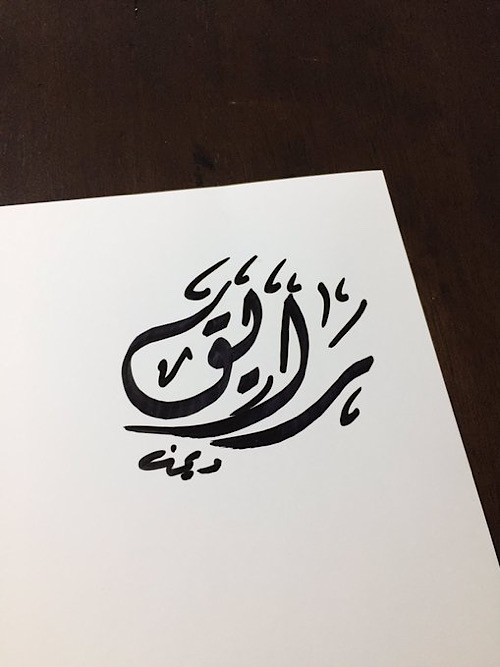 رايق
ديمه